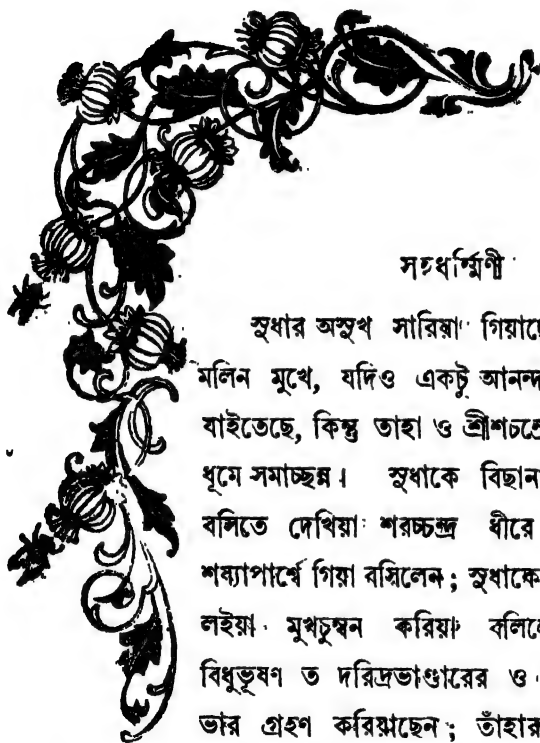 সহধর্ম্মিণী
সুধার অসুখ সারিয়া গিয়াছে
মলিন মুখে, যদিও একটু আনন্দ
যাইতেছে, কিন্তু তাহা ও শ্রীশচন্দ্রে
ধূমে সমাচ্ছন্ন। সুধাকে বিছানা
বলিতে দেখিয়া শরচ্চন্দ্র ধীরে
শয্যাপার্শ্বে গিয়া বসিলেন; সুধাকে
লইয়া মুখচুম্বন করিয়া বলিলে
বিধুভূষণ ত দরিদ্রভাণ্ডারের ও
ভার গ্রহণ করিয়াছেন; তাঁহার